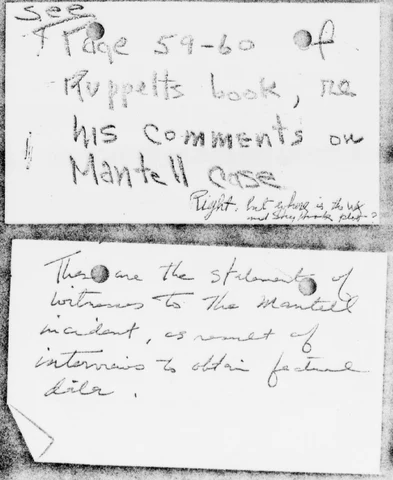 See
Page 59-60 of
Ruppelts book, re
his comments on
Mantell case
Right. but where is the wx
and
These are the statements of
witnesses to the Mantell
incident, as result of
interviews to obtain factual
data.